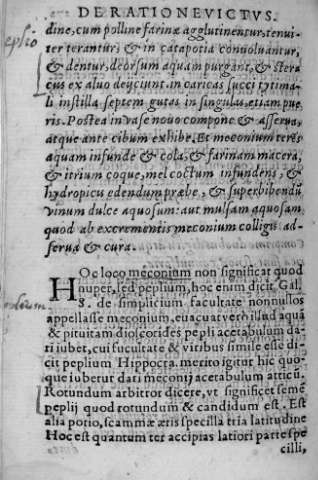 DE RATIONE VICTVS.
dine, cum polline farinæ agglutinentur, tenui-
ter terantur, & in catapotia conuoluantur,
& dentur, deorsum aquam purgant, & ster⁊a
cus ex aluo deijciunt. in caricas succi tytima-
li instilla septem gutas in singulas, etiam pue
ris. Postea in vase nouo compone & asserua,
atque ante cibum exhibe. Et meconium teres,
aquam infunde & cola, & farinam macera,
& itrium coque, mel coctum infundens, &
hydropicu edendum præbe, & superbibendũ
vinum dulce aquosum: aut mulsam aquosam,
quod ab excrementis meconium colligis ad-
serua & cura.
HOc loco meconium non significat quod
nuper, sed peplium, hoc enim dicit Gal.
8. de simplicium facultate nonnullos
appellasse meconium, euacuat verò illud aquã
& pituitam dioscorides pepli acetabulum da-
ri iubet, cui facultate & viribus simile esse di-
cit peplium Hippocra. merito igitur hic quo-
que iuberur dari meconij acetabulum atticũ.
Rotundum arbitror dicere, vt significet semẽ
peplij quod rotundum & candidum est. Est
alia potio, scammæ æris specilla tria latitudine
Hoc est quantum ter accipias latiori parte spe
cilli,